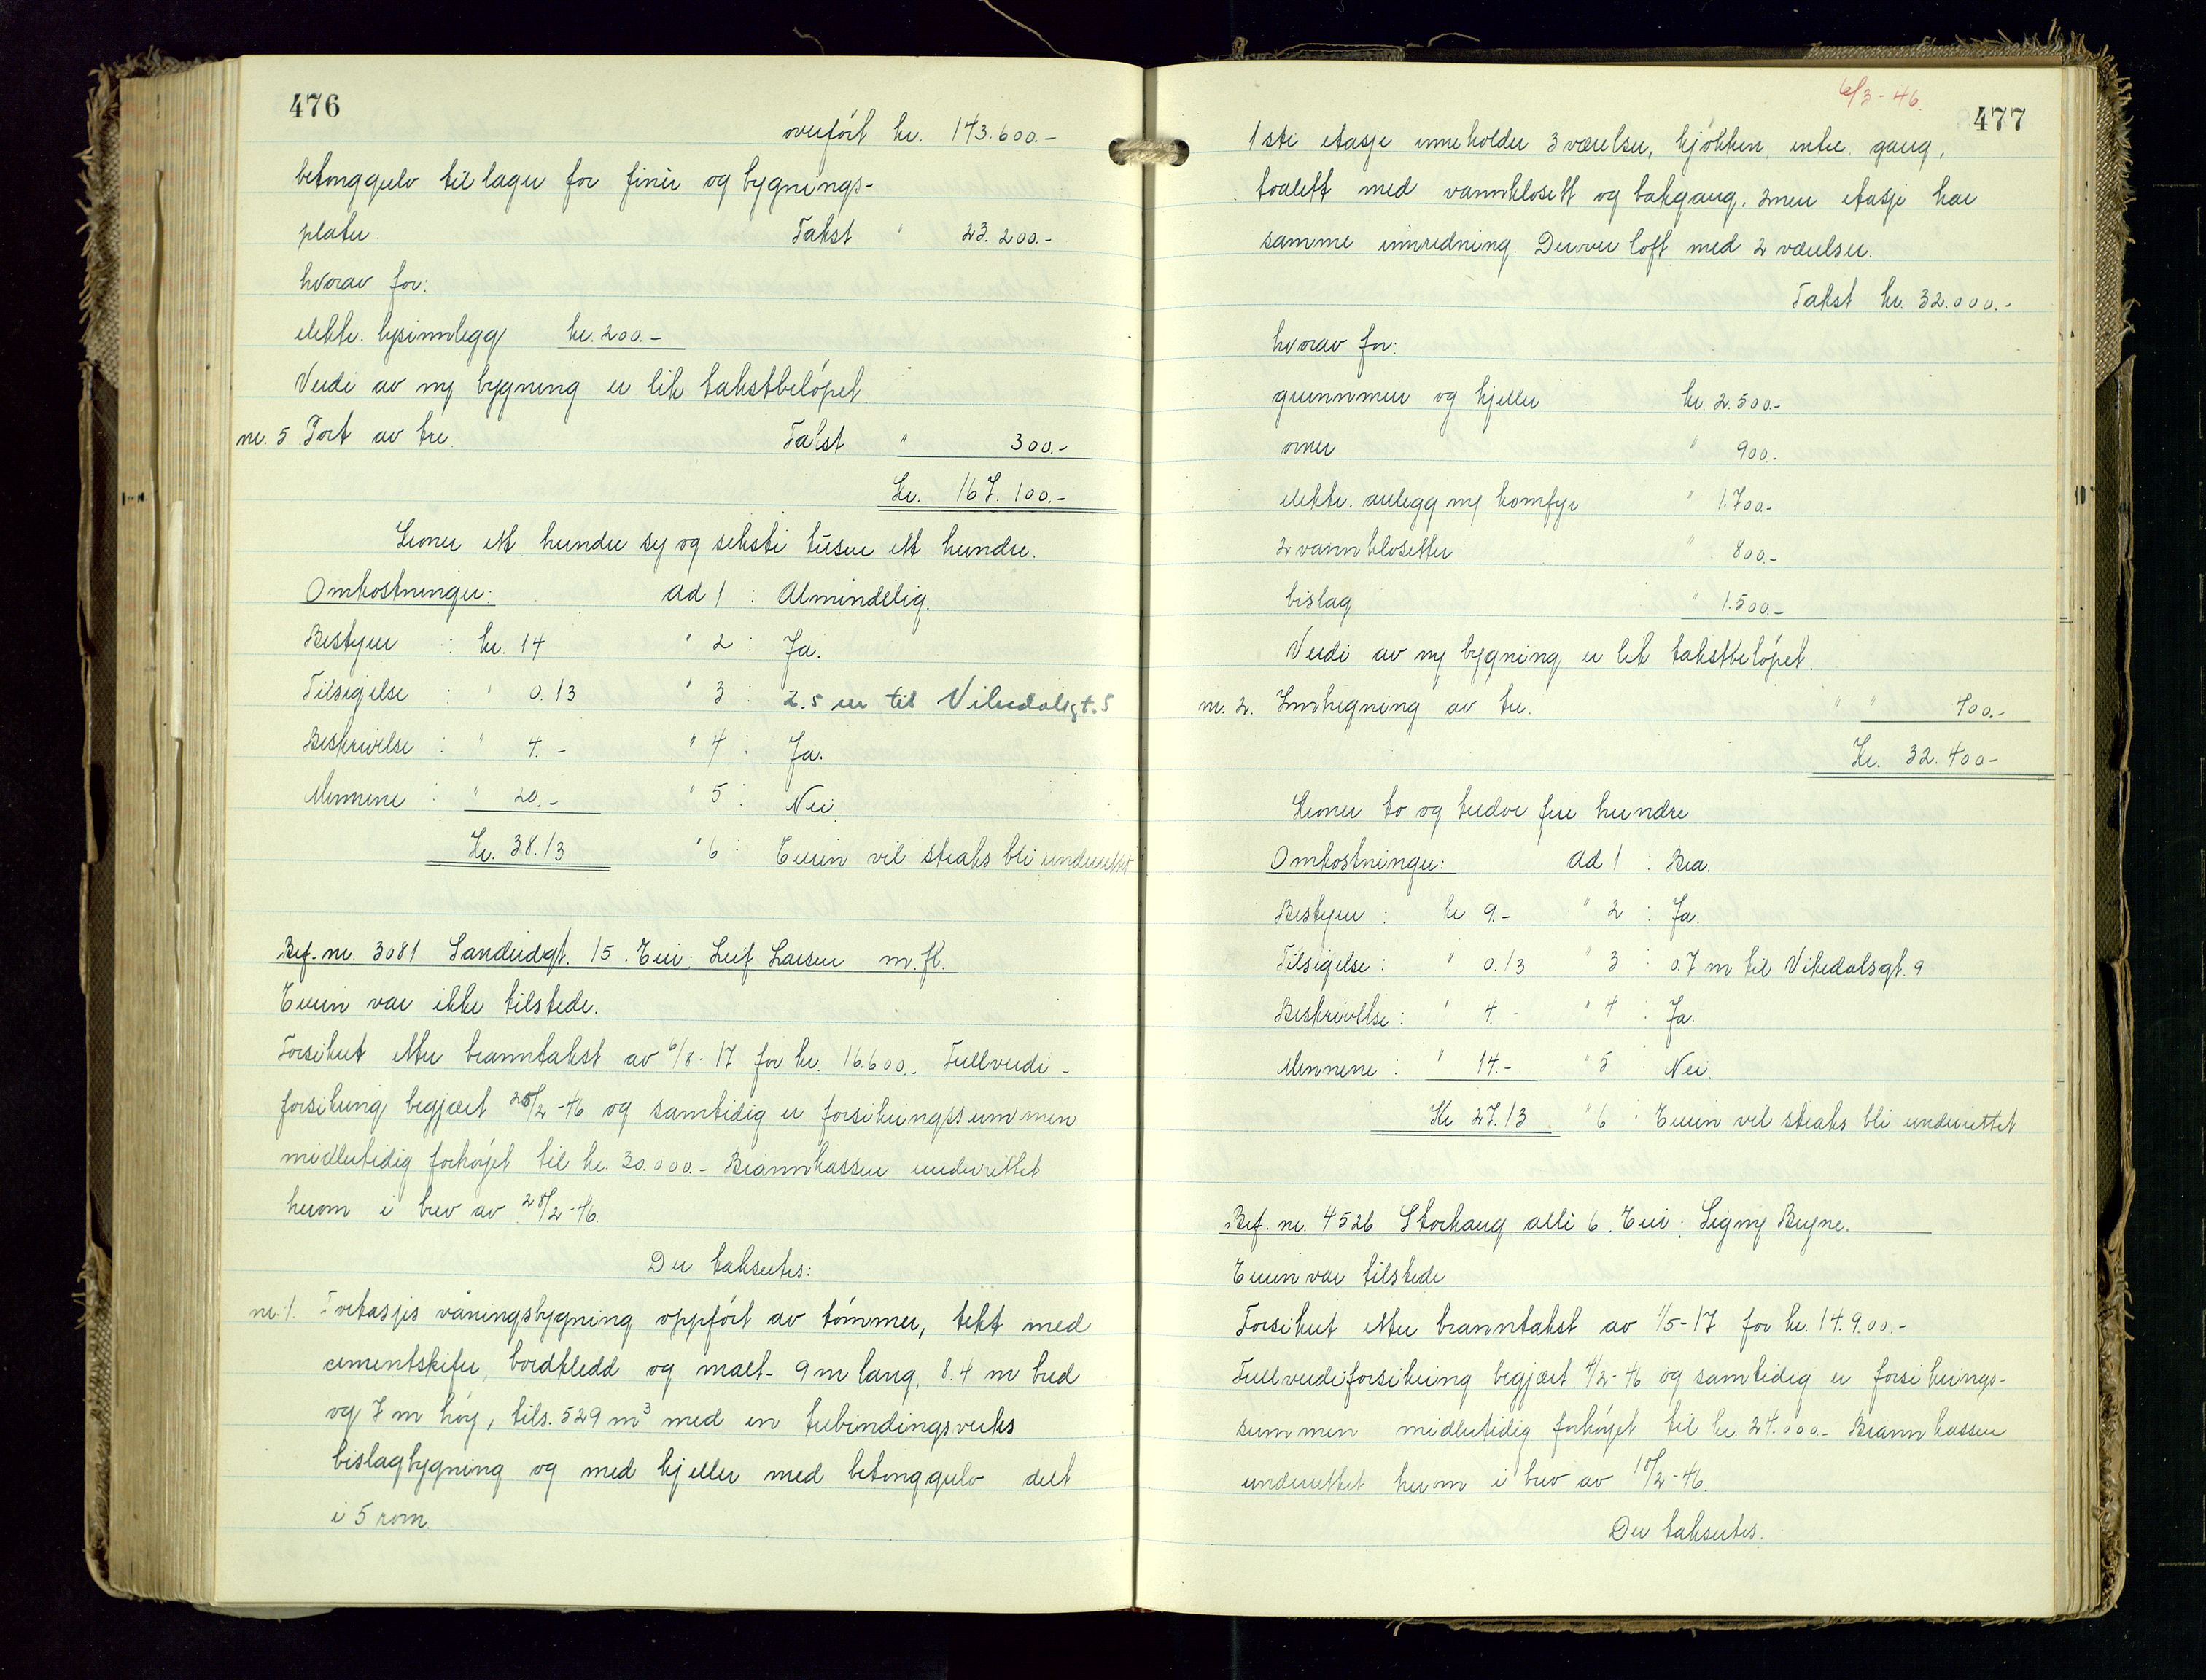 476
overført kr. 143.600.-
betonggulv til lager for finér og bygnings-
plater. Takst " 23.200.-
hvorav for:
elektr. lysinnlegg kr. 200.-
Verdi av ny bygning er lik takstbeløpet.
nr. 5 Port av tre. Takst " 300.-
Kr. 167.100.-
Kroner ett hundre syv og seksti tusen ett hundre.
Omkostninger: ad 1 : Almindelig.
Bestyrer : kr. 14 " 2 : Ja.
Tilsigelse : " 0.13 " 3 : 2.5 m til Vikedalsgt. 5
Beskrivelse : " 4.- " 4 : Ja.
Mennene : " 20.- " 5 : Nei.
Kr. 38.13 " 6 : Eieren vil straks bli underrettet
Bef. nr. 3081 Sandeidgt. 15. Eier: Leif Larsen m. fl.
Eieren var ikke tilstede.
Forsikret etter branntakst av 6/8-17 for kr. 16.600.- Fullverdi-
forsikring begjært 25/2-46 og samtidig er forsikringssummen
midlertidig forhøyet til kr. 30.000.- Brannkassen underrettet
herom i brev av 28/2-46.
Der takseres:
nr. 1. Toetasjes våningsbygning oppført av tømmer, tekt med
cementskifer, bordkledd og malt- 9 m lang, 8.4 m bred
og 7 m høy, tils. 529 m³ med en trebindingsverks
bislagbygning og med kjeller med betonggulv delt
i 5 rom.
6/3-46.
477
1ste etasje inneholder 3 værelser, kjøkken, entre, gang,
toalett med vannklosett og bakgang. 2nen etasje har
samme innredning. Derover loft med 2 værelser.
Takst kr. 32.000.-
hvorav for:
grunnmur og kjeller kr. 2.500.-
ovner " 900.-
elektr. anlegg og komfyr " 1.700.-
2 vannklosetter " 800.-
bislag " 1.500.-
Verdi av ny bygning er lik takstbeløpet.
nr. 2. Innhegning av tre. " " 400.-
Kr. 32.400.-
Kroner to og tredve fire hundre
Omkostninger: ad 1 : Bra.
Bestyrer : kr 9.- " 2 : Ja.
Tilsigelse : " 0.13 " 3 : 0.7 m til Vikedalsgt. 9
Beskrivelse : " 4.- " 4 : Ja.
Mennene : " 14.- " 5 : Nei.
Kr 27.13 " 6 : Eieren vil straks bli underrettet
Bef. nr. 4526 Storhaug allé 6. Eier: Signy Bryne.
Eieren var tilstede
Forsikret etter branntakst av 1/5-17 for kr. 14.900.-
Fullverdiforsikring begjært 4/2-46 og samtidig er forsikrings-
summen midlertidig forhøyet til kr. 24.000.- Brannkassen
underrettet herom i brev av 18/2-46.
Der takseres.